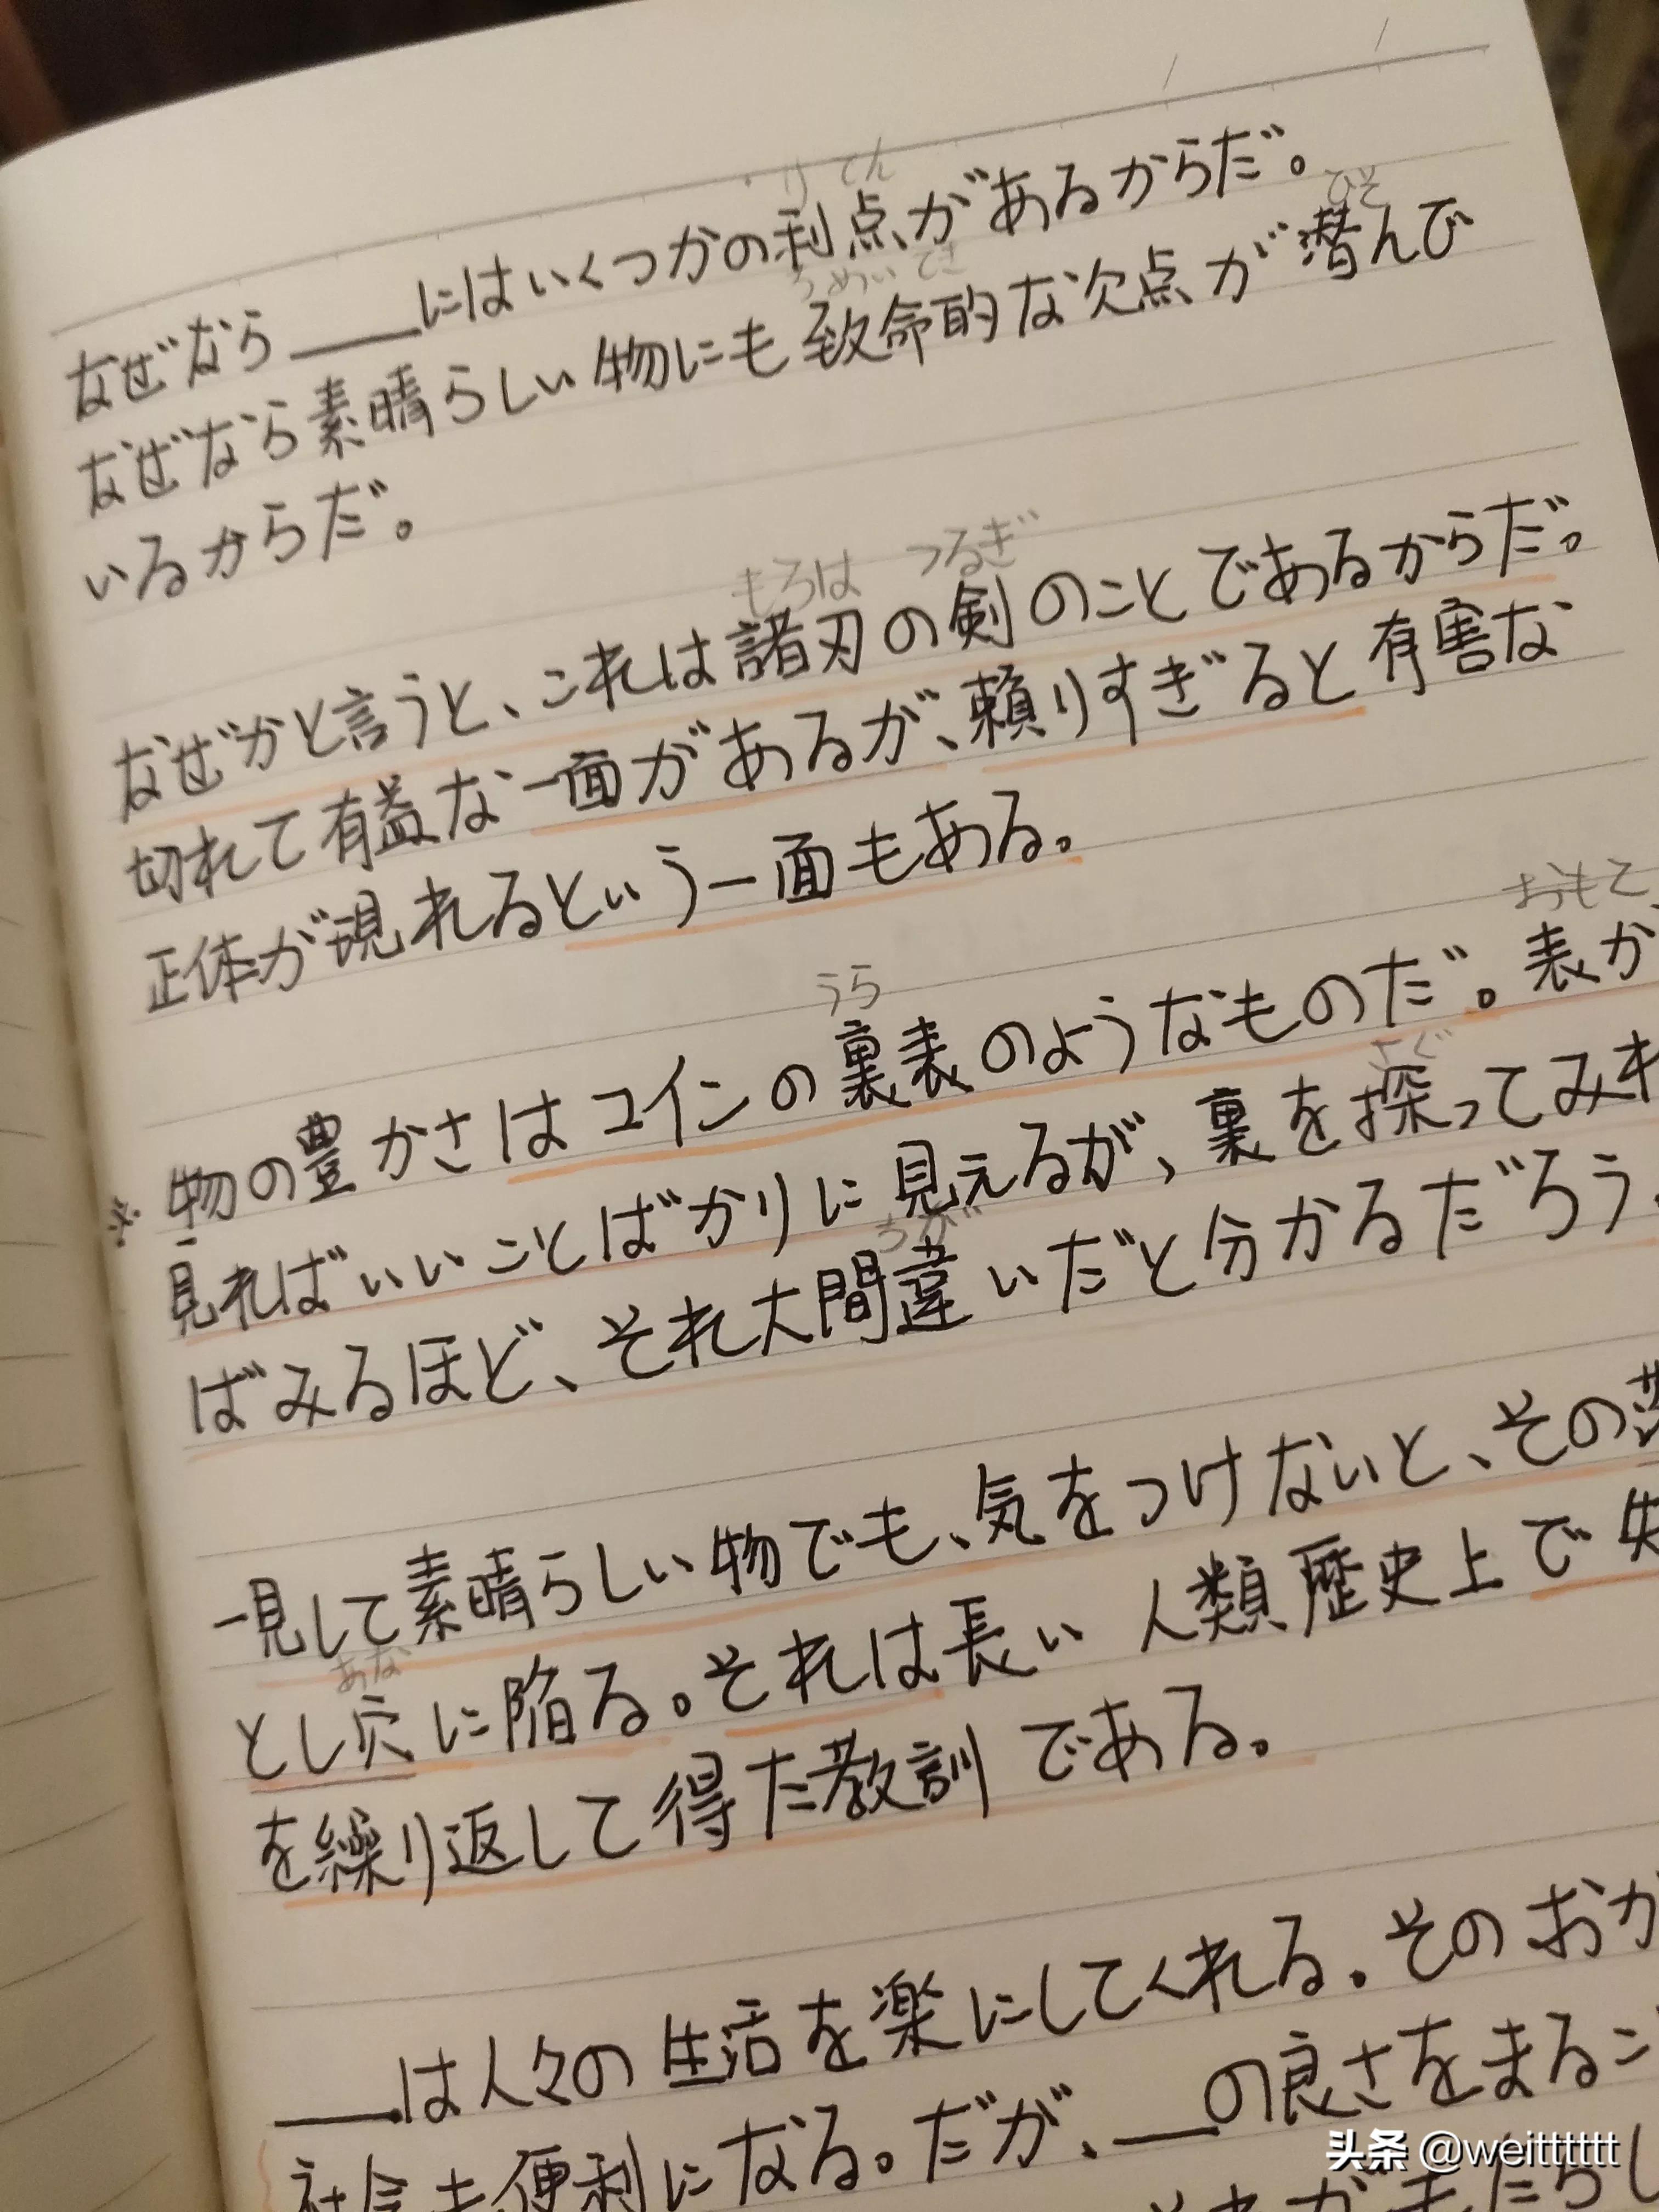 なぜなら＿＿にはいくつかの利点があるからだ。
りてん
なぜなら素晴らしい物にも致命的な欠点が潜んで
ちめいてき
ひそ
いるからだ。
なぜかと言うと、これは諸刃の剣のことであるからだ。
もろは つるぎ
切れて有益な一面があるが、頼りすぎると有害な
正体が現れるという一面もある。
※物の豊かさはコインの裏表のようなものだ。表か
うら
おもて
見ればいいことばかりに見えるが、裏を探ってみれ
さぐ
ばみるほど、それ大間違いだと分かるだろう。
ちが
一見して素晴らしい物でも、気をつけないと、その落
とし穴に陥る。それは長い人類歴史上で失
あな
を繰り返して得た教訓である。
＿＿は人々の生活を楽にしてくれる。そのおか
社会も便利になる。だが、＿＿の良さをまるご
頭条 @weitttttt